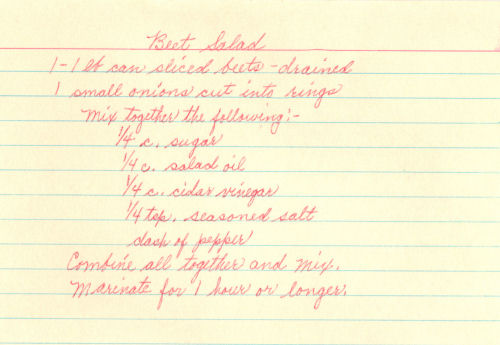 Beet Salad
1-1 lb can sliced beets - drained
1 small onions cut into rings
Mix together the following:-
1/4 c. sugar
1/4 c. salad oil
1/4 c. cidar vinegar
1/4 tsp. seasoned salt
dash of pepper
Combine all together and mix.
Marinate for 1 hour or longer.